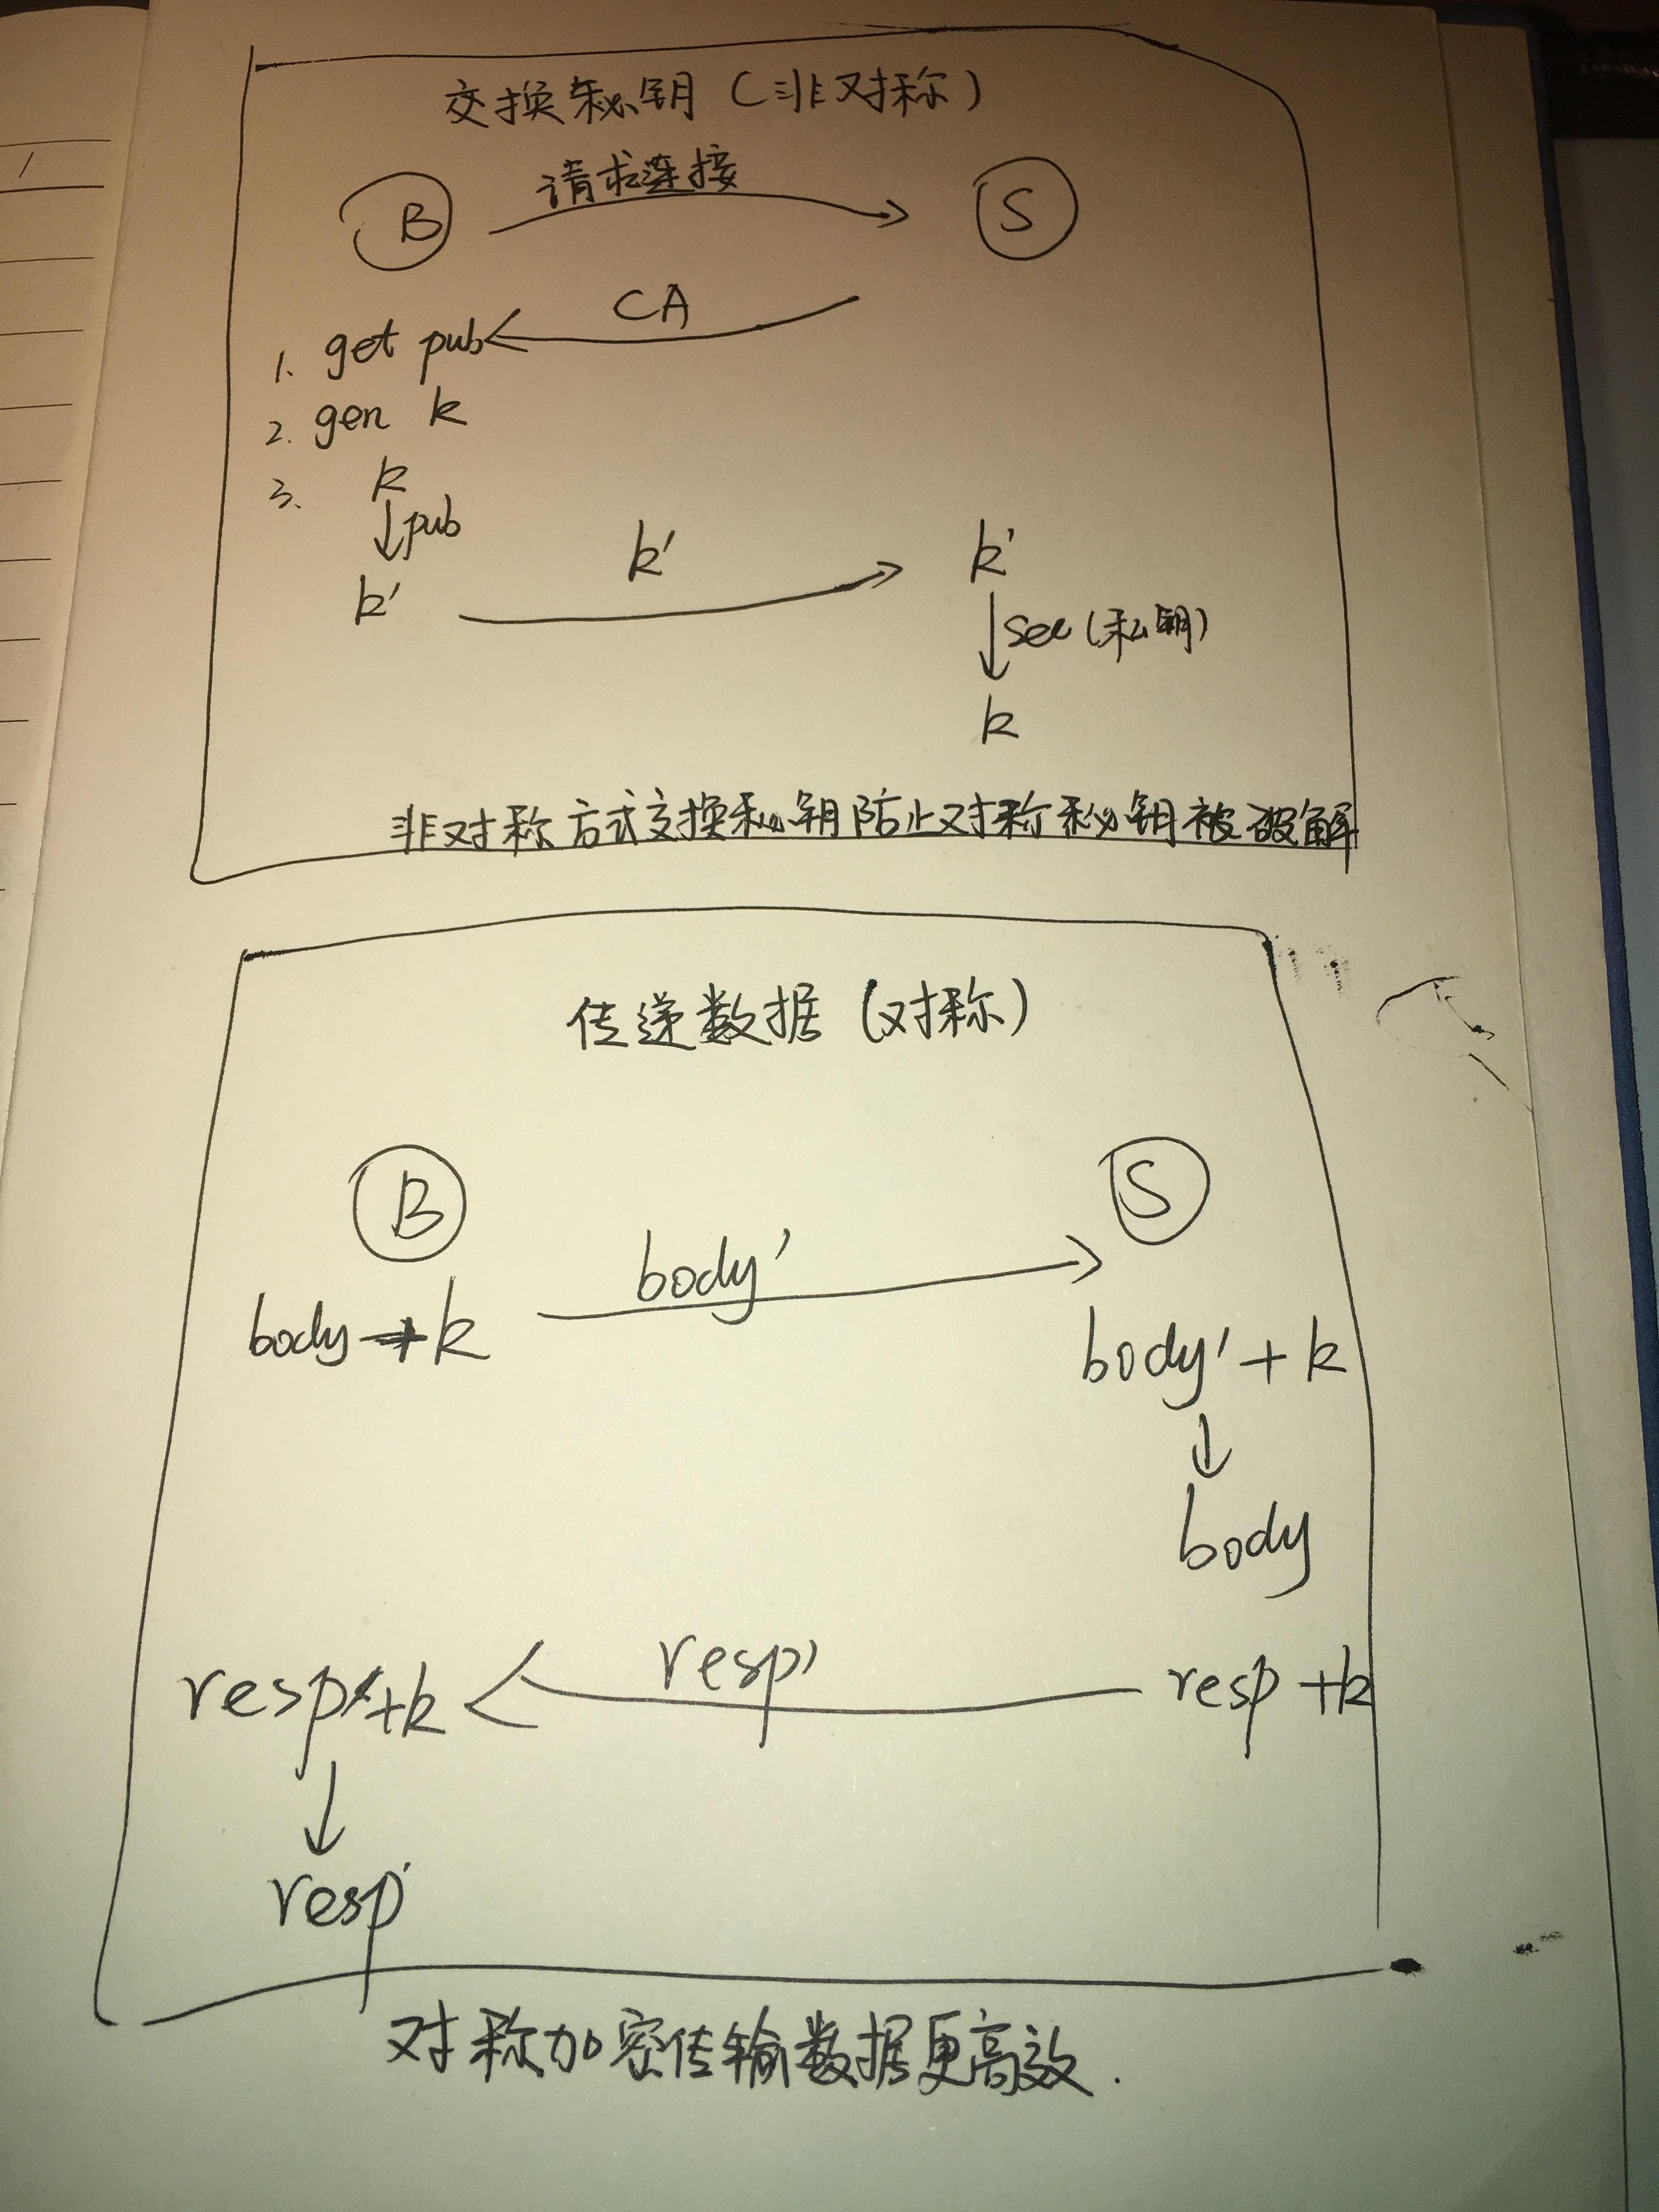 交换秘钥（非对称）
请求连接
B
S
CA
1. get pub
2. gen k
3. k
pub
k'
k'
k'
sec（私钥）
k
非对称方式交换秘钥防止对称秘钥被破解
传递数据（对称）
B
S
body'
body + k
body' + k
body
resp'
resp' + k
resp + k
resp
对称加密传输数据更高效.